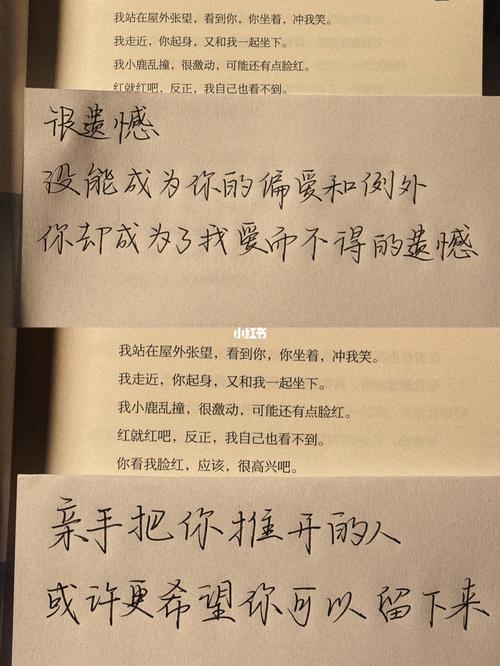 我站在屋外张望，看到你，你坐着，冲我笑。
我走近，你起身，又和我一起坐下。
我小鹿乱撞，很激动，可能还有点脸红。
红就红吧，反正，我自己也看不到。
很遗憾
没能成为你的偏爱和例外
你却成为了我爱而不得的遗憾
小红书
我站在屋外张望，看到你，你坐着，冲我笑。
我走近，你起身，又和我一起坐下。
我小鹿乱撞，很激动，可能还有点脸红。
红就红吧，反正，我自己也看不到。
你看我脸红，应该，很高兴吧。
亲手把你推开的人
或许更希望你可以留下来